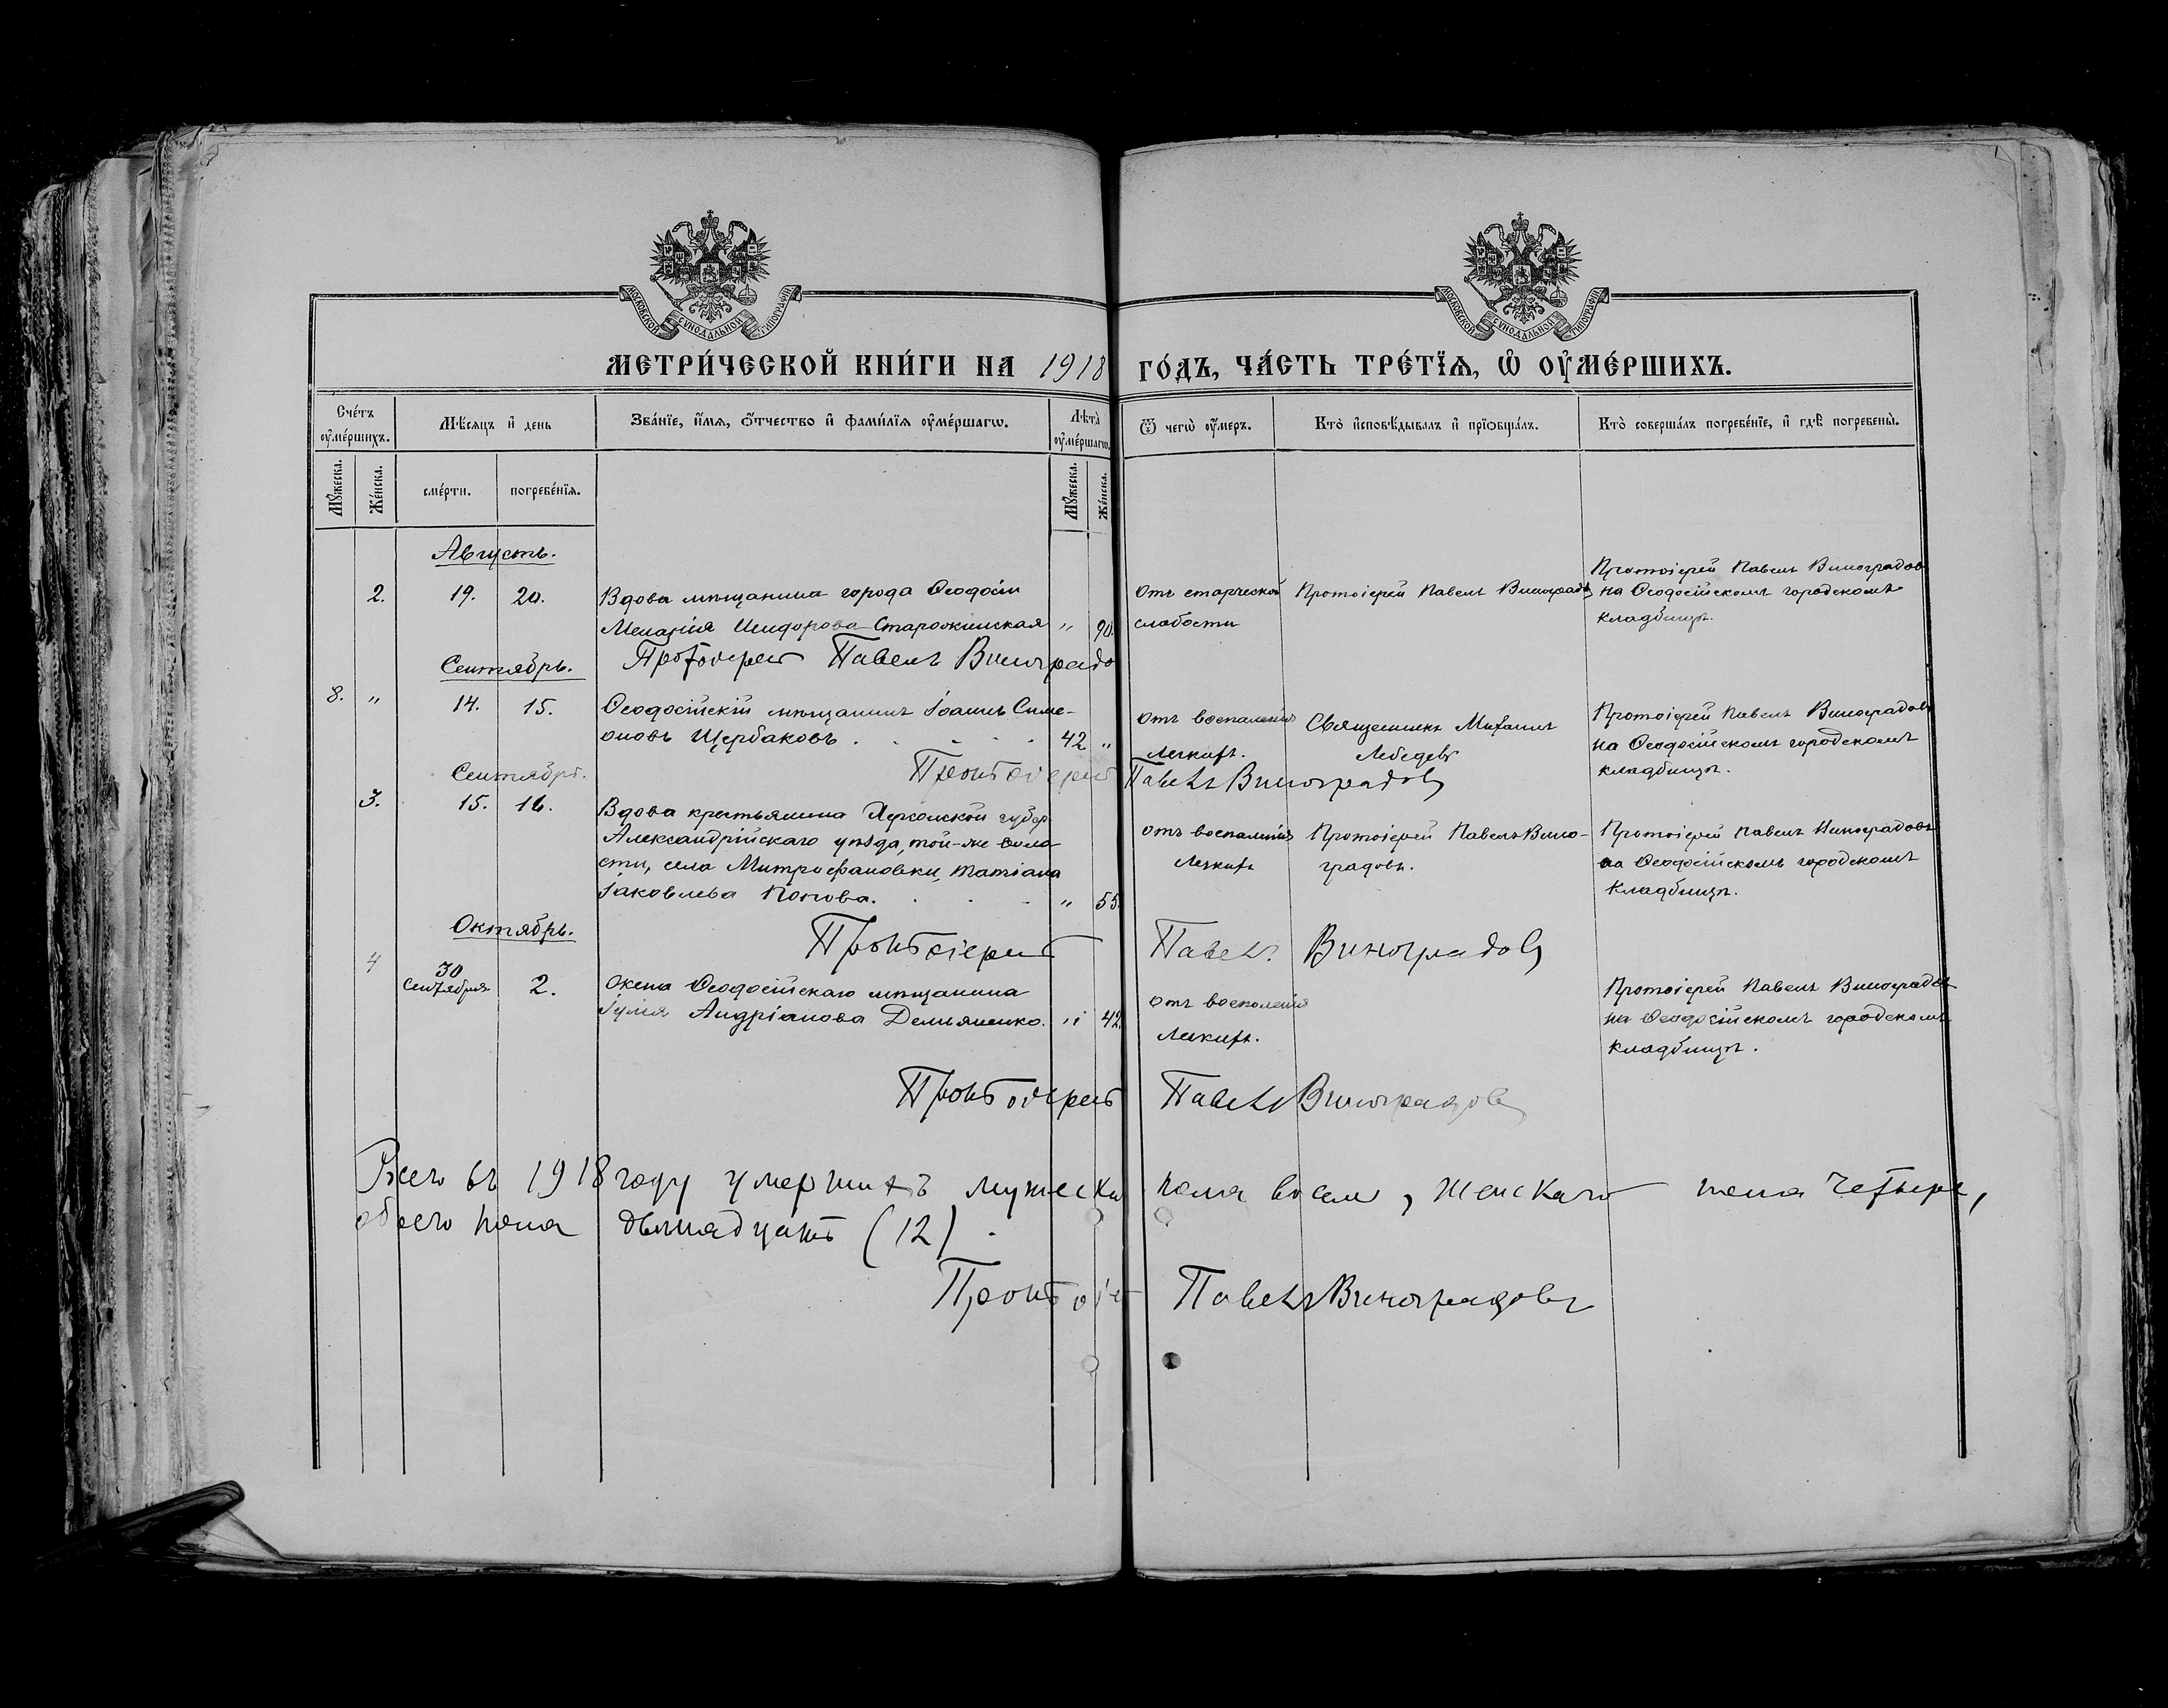 МОСКОВСКОЙ СѴНОДАЛЬНОЙ ТИПОГРАФІИ
МОСКОВСКОЙ СѴНОДАЛЬНОЙ ТИПОГРАФІИ
МЕТРИ́ЧЕСКОЙ КНИ́ГИ НА 1918 ГО́ДЪ, ЧА́СТЬ ТРЕ́ТЇѦ, Ѡ҆ ОУ҆МЕ́РШИХЪ.
Сче́тъ оу҆ме́ршихъ.
Мѣ́сѧцъ и҆ де́нь
Зва́нїе, и҆́мѧ, ѻ҆́тчество и҆ фами́лїѧ оу҆ме́ршагѡ.
Лѣ́та оу҆ме́ршагѡ.
Ѿ чегѡ̀ оу҆́меръ.
Кто̀ и҆сповѣ́дывалъ и҆ прїѡбща́лъ.
Кто̀ соверша́лъ погребе́нїе, и҆ гдѣ̀ погребены̀.
Мꙋ́жеска. Же́нска. сме́рти. погребе́нїѧ. Мꙋ́жеска. Же́нска.
Августъ.
2. 19. 20. Вдова мѣщанина города Ѳеодосіи
Меланія Исидорова Старожинская " 90.
Отъ старческой
слабости
Протоіерей Павелъ Виноградовъ
Протоіерей Павелъ Виноградовъ
на Ѳеодосійскомъ городскомъ
кладбищѣ.
Протоіерей Павелъ Виноградо
Сентябрь.
8. " 14. 15. Ѳеодосійскій мѣщанинъ Іоаннъ Симе-
оновъ Щербаковъ . . . . . 42 "
Отъ воспаленія
легкихъ.
Священникъ Михаилъ
Лебедевъ
Протоіерей Павелъ Виноградовъ
на Ѳеодосійскомъ городскомъ
кладбищѣ.
Протоіерей Павелъ Виноградовъ
Сентябрь.
3. 15. 16. Вдова крестьянина Херсонской губер.
Александрійскаго уѣзда, той-же воло-
сти, села Митрофановки, Татіана
Іаковлева Попова. . . . " 55.
Отъ воспаленія
легкихъ
Протоіерей Павелъ Вино-
градовъ.
Протоіерей Павелъ Виноградовъ
на Ѳеодосійскомъ городскомъ
кладбищѣ.
Протоіерей Павелъ Виноградовъ
Октябрь.
4 30 Сентября 2. Жена Ѳеодосійскаго мѣщанина
Іулія Андріанова Демьяненко. " 42.
Отъ воспаленія
легкихъ.
Протоіерей Павелъ Виноградовъ
на Ѳеодосійскомъ городскомъ
кладбищѣ.
Протоіерей Павелъ Виноградовъ
Всего въ 1918 году умершихъ мужеска пола восемь, женскаго пола четыре,
обоего пола двѣнадцать (12).
Протоіе Павелъ Виноградовъ